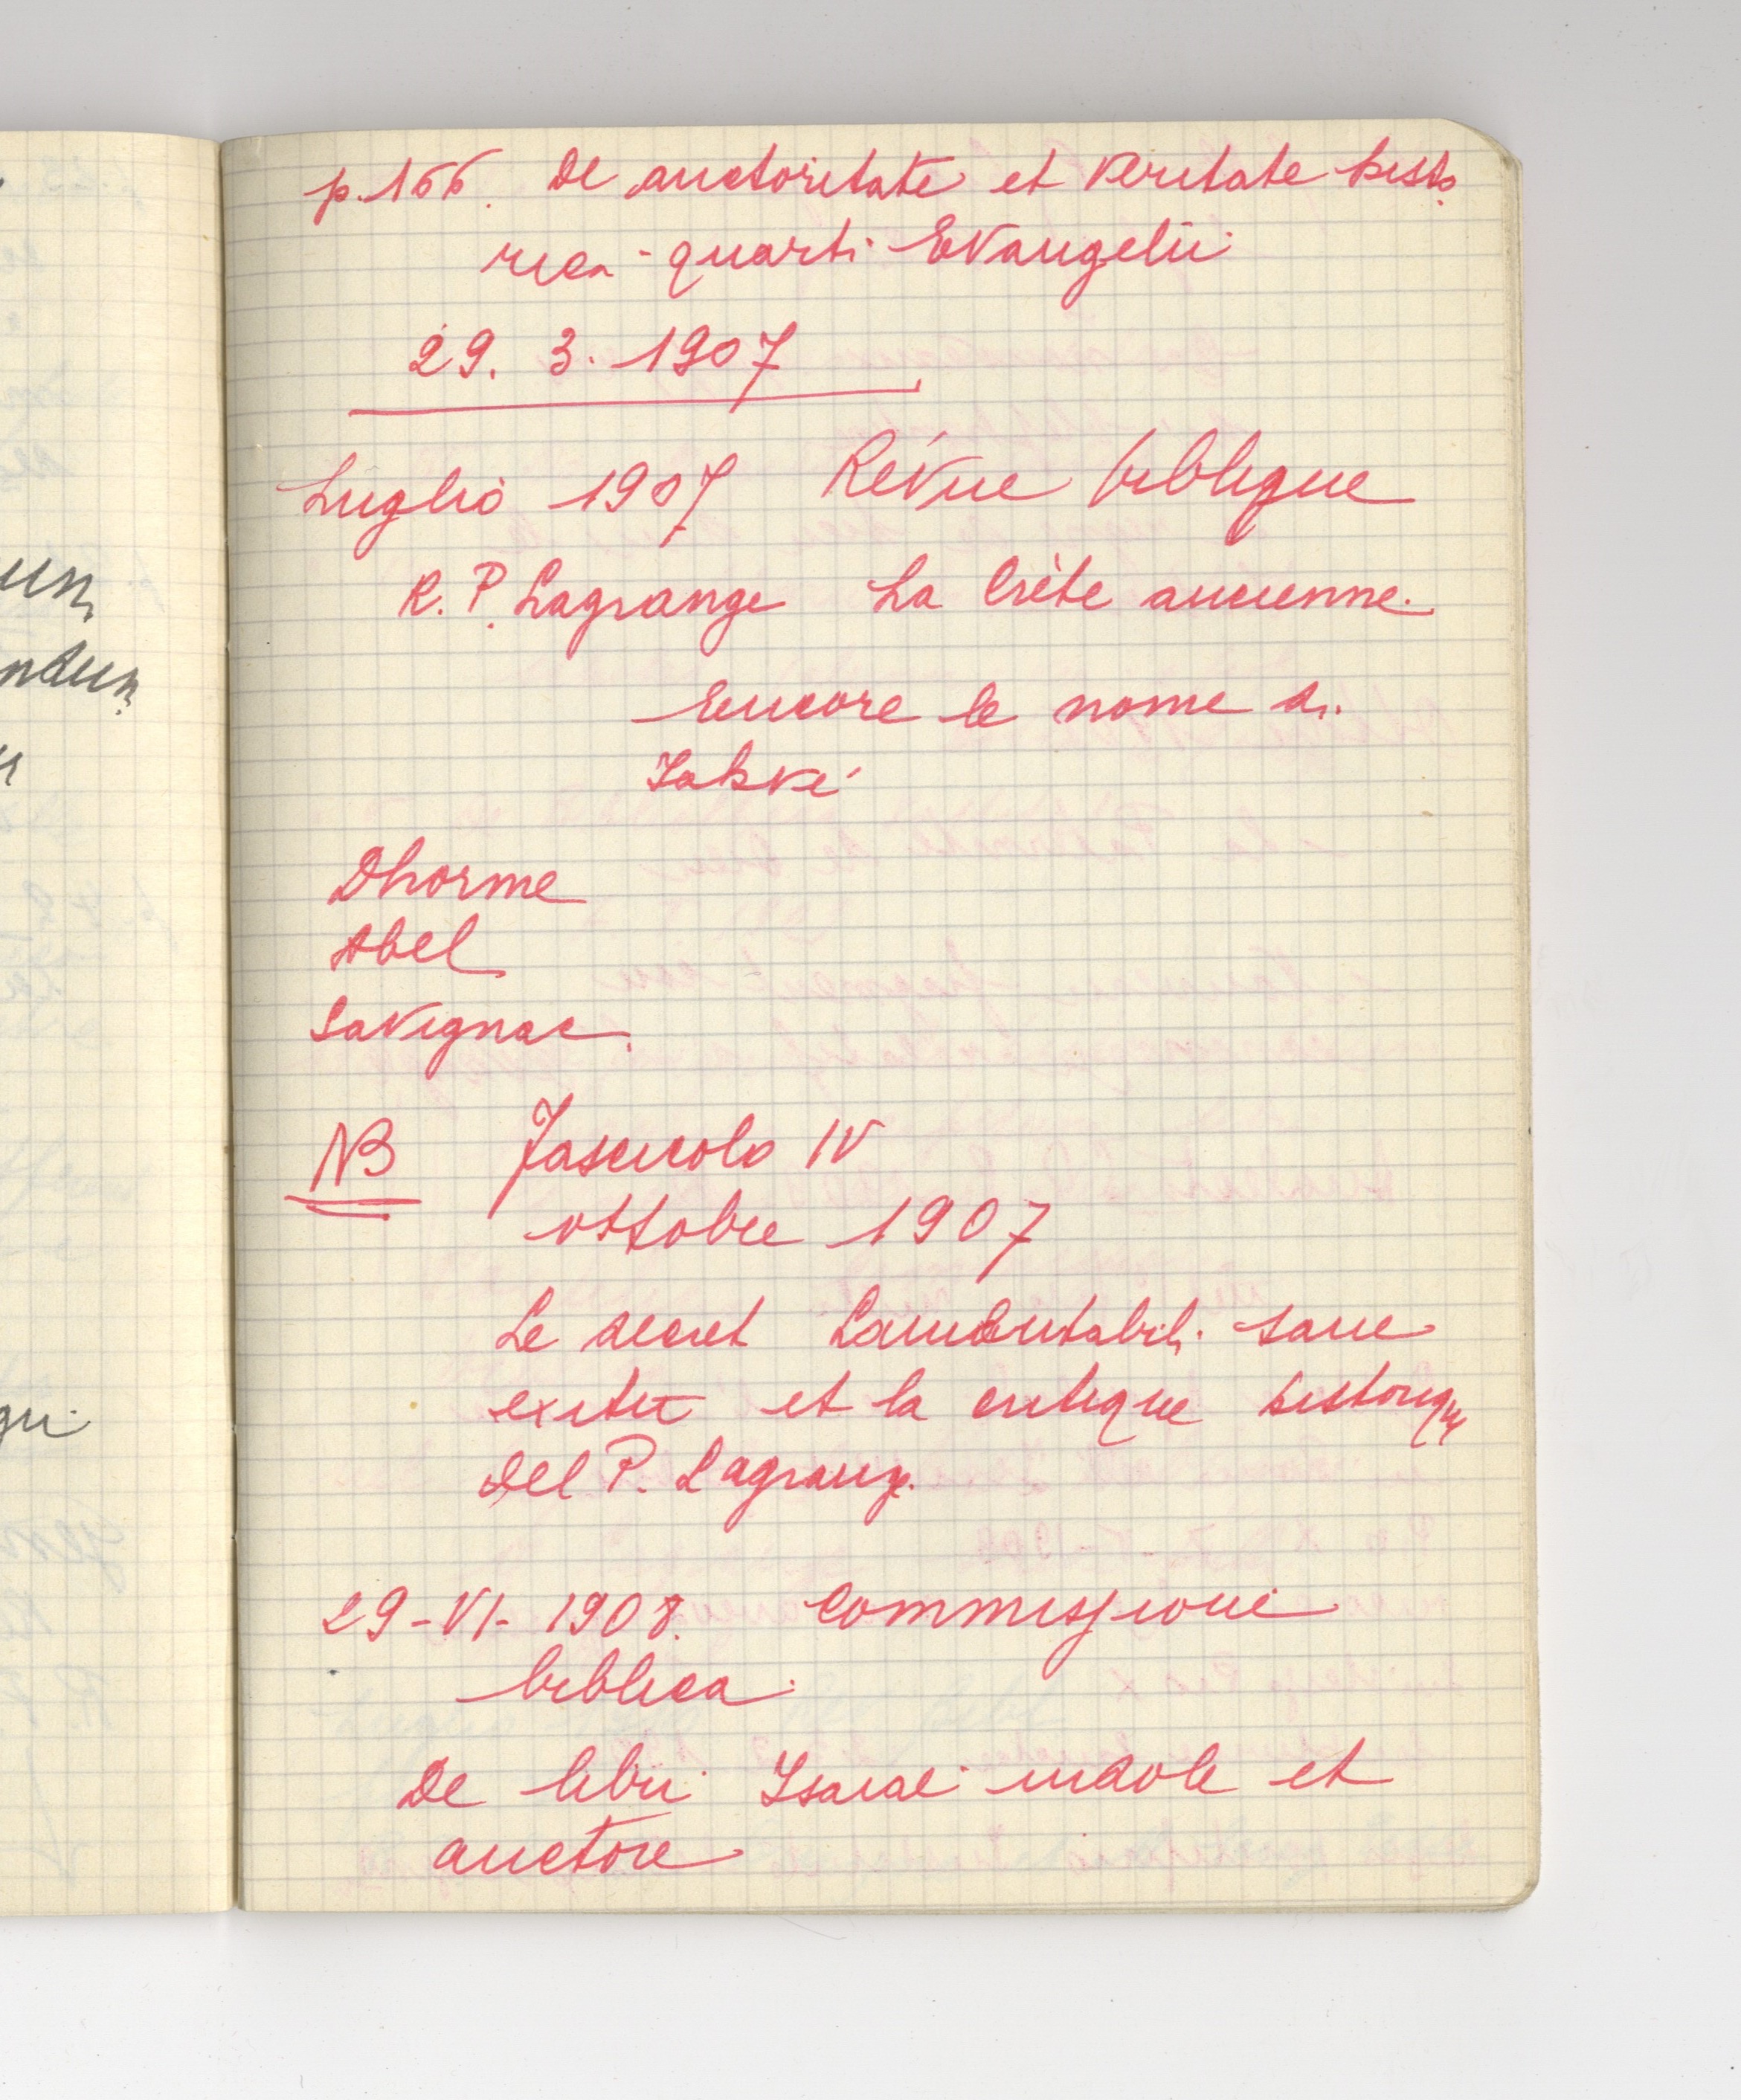 p. 166. De auctoritate et veritate histo
rica - quarti Evangelii
29. 3. 1907
Luglio 1907 Révue biblique
R. P. Lagrange La Crète ancienne.
Encore le nome di
Iahvé
Dhorme
Abel
Savignac.
NB Fascicolo IV
ottobre 1907
Le decret Lamentabili sane
exitu et la critique historique
del P. Lagrange.
29-VI-1908. Commissione
biblica.
De libri Isaiae indole et
auctore